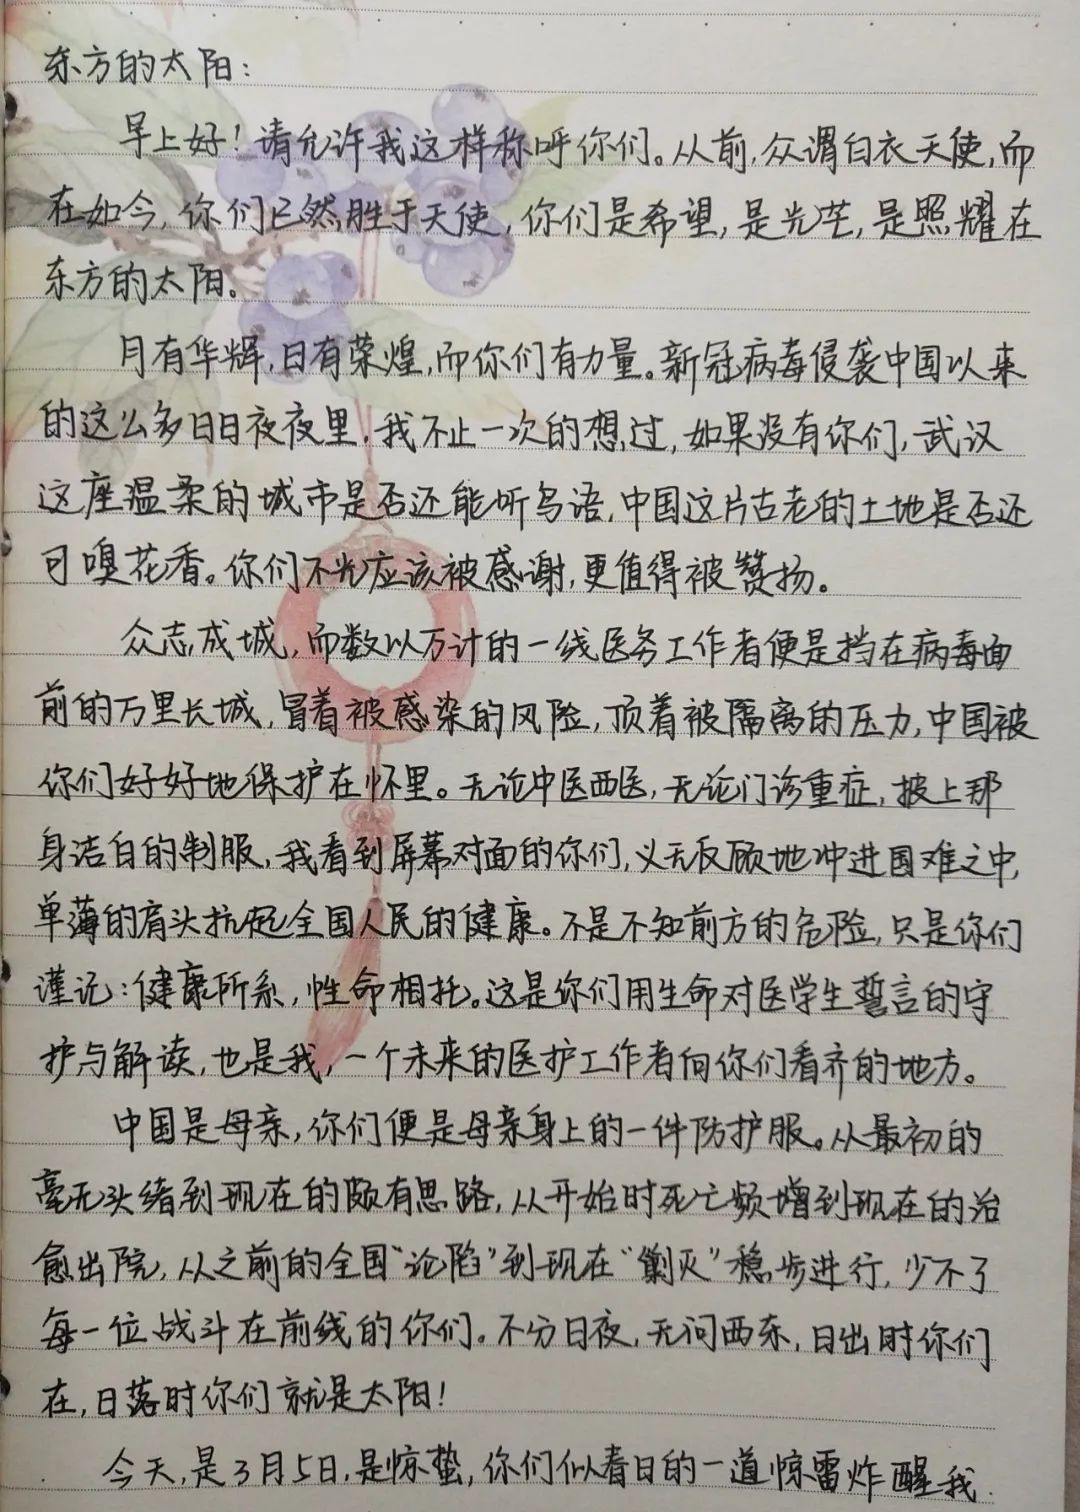 东方的太阳：
早上好！请允许我这样称呼你们。从前，众谓白衣天使，而
在如今，你们已然胜于天使，你们是希望，是光芒，是照耀在
东方的太阳。
月有华辉，日有荣煌，而你们有力量。新冠病毒侵袭中国以来
的这么多日日夜夜里，我不止一次的想过，如果没有你们，武汉
这座温柔的城市是否还能听鸟语，中国这片古老的土地是否还
可嗅花香。你们不光应该被感谢，更值得被赞扬。
众志成城，而数以万计的一线医务工作者便是挡在病毒面
前的万里长城，冒着被感染的风险，顶着被隔离的压力，中国被
你们好好地保护在怀里。无论中医西医，无论门诊重症，披上那
身洁白的制服，我看到屏幕对面的你们，义无反顾地冲进国难之中，
单薄的肩头抗起全国人民的健康。不是不知前方的危险，只是你们
谨记：健康所系，性命相托。这是你们用生命对医学生誓言的守
护与解读，也是我，一个未来的医护工作者向你们看齐的地方。
中国是母亲，你们便是母亲身上的一件防护服。从最初的
毫无头绪到现在的颇有思路，从开始时死亡频增到现在的治
愈出院，从之前的全国“论陷”到现在“剿灭”稳步进行，少不了
每一位战斗在前线的你们。不分日夜，无问西东，日出时你们
在，日落时你们就是太阳！
今天，是3月5日，是惊蛰，你们似春日的一道惊雷炸醒我